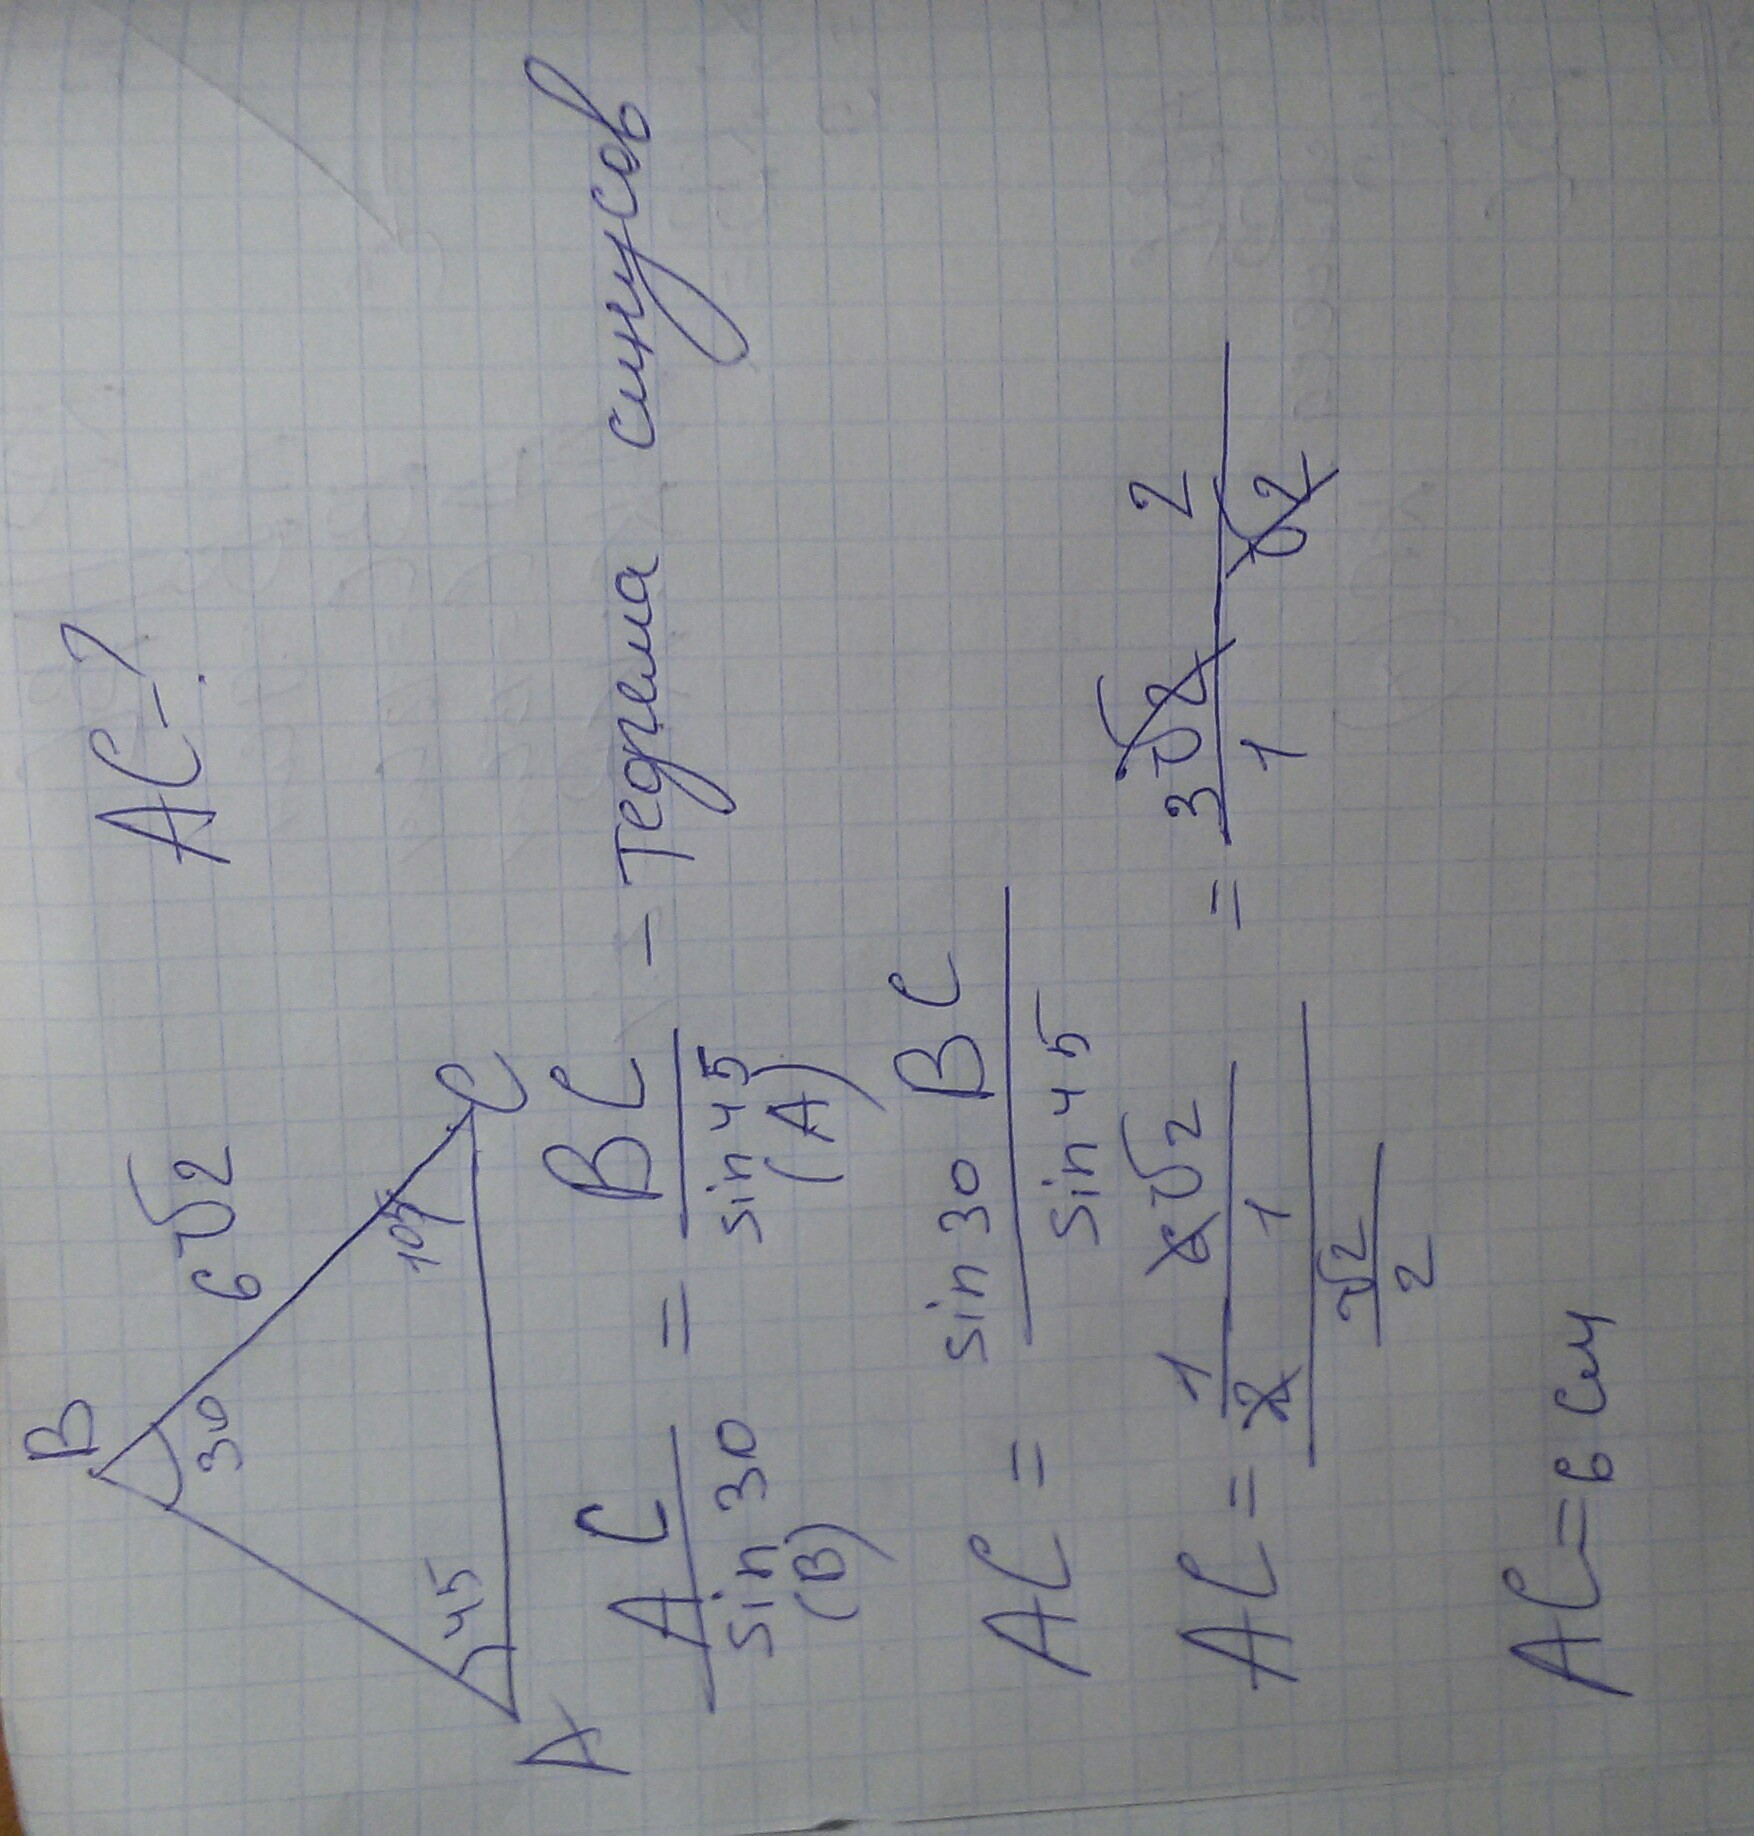 AC-?
B
6√2
30
45
105
A
C
AC/sin 30 (B) = BC/sin 45 (A) - Теорема синусов
AC = sin 30 BC/sin 45
AC = (1/2 6√2/1)/(√2/2) = 3√2 2/1 √2
AC = 6 см